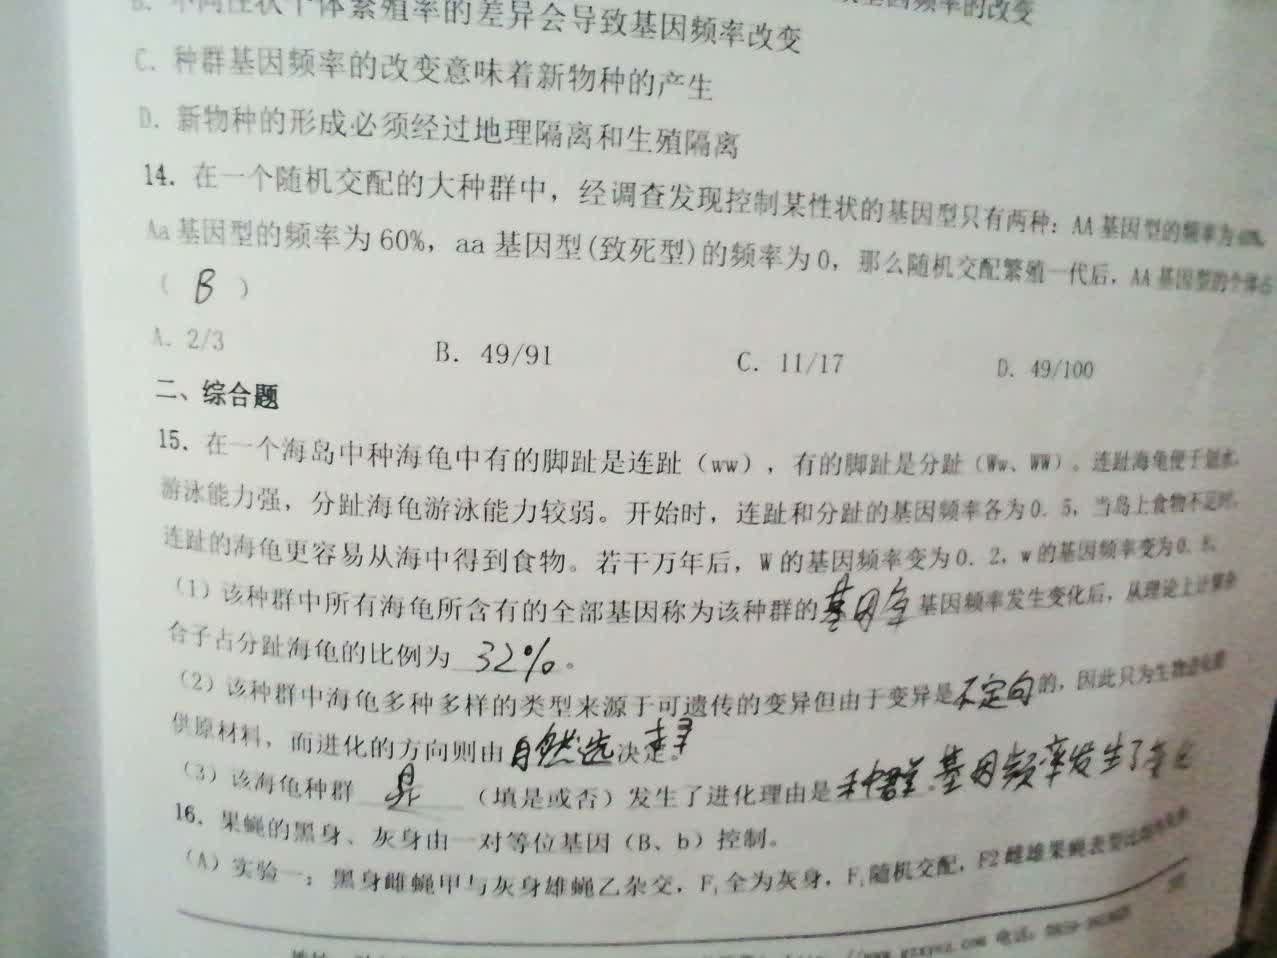 B. 不同性状个体繁殖率的差异会导致基因频率改变
基因频率的改变
C. 种群基因频率的改变意味着新物种的产生
D. 新物种的形成必须经过地理隔离和生殖隔离
14. 在一个随机交配的大种群中，经调查发现控制某性状的基因型只有两种：AA基因型的频率为
Aa基因型的频率为60%，aa基因型(致死型)的频率为0，那么随机交配繁殖一代后，AA基因型的个体占
（ B ）
A. 2/3 B. 49/91 C. 11/17 D. 49/100
二、综合题
15. 在一个海岛中种海龟中有的脚趾是连趾（ww），有的脚趾是分趾（Ww、WW）。连趾海龟便于划水，
游泳能力强，分趾海龟游泳能力较弱。开始时，连趾和分趾的基因频率各为0.5，当岛上食物不足时，
连趾的海龟更容易从海中得到食物。若干万年后，W的基因频率变为0.2，w的基因频率变为0.8。
（1）该种群中所有海龟所含有的全部基因称为该种群的基因库基因频率发生变化后，从理论上计算杂
合子占分趾海龟的比例为 32% 。
（2）该种群中海龟多种多样的类型来源于可遗传的变异但由于变异是不定向的，因此只为生物进化提
供原材料，而进化的方向则由自然选择决定。
（3）该海龟种群 是 （填是或否）发生了进化理由是种群基因频率发生了变化
16. 果蝇的黑身、灰身由一对等位基因（B、b）控制。
（A）实验一：黑身雌蝇甲与灰身雄蝇乙杂交，F₁全为灰身，F₁随机交配，F2雌雄果蝇表型比